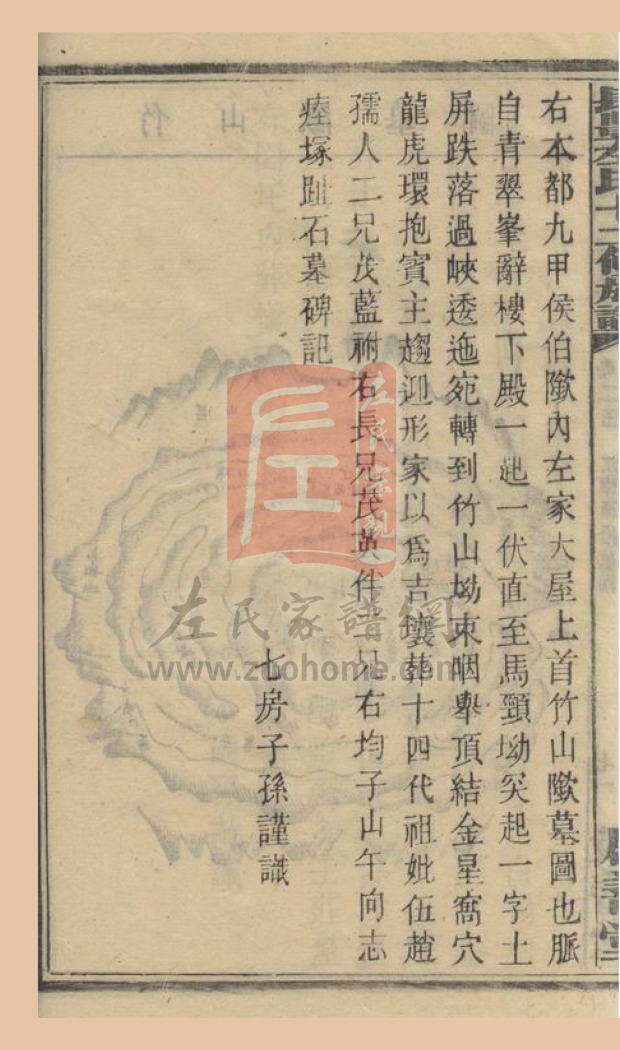 右本都九甲侯伯隞內左家大屋上首竹山隞墓圖也脈
自青翠峯辭樓下殿一起一伏直至馬頸坳突起一字土
屏跌落過峽逶迤宛轉到竹山坳束咽舉頂結金星窩穴
龍虎環抱賓主趨迎形家以爲吉穰葬十四代祖妣伍趙
孺人二兄茂藍祔右長兄茂英伴二兄右均子山午向志
瘞塚趾石墓碑記
七房子孫謹識
左氏家譜網
www.zuohome.com